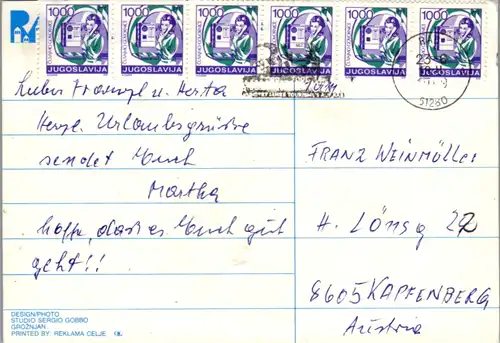 1000 1000 1000 1000 1000 1000
JUGOSLAVIJA JUGOSLAVIJA JUGOSLAVIJA JUGOSLAVIJA JUGOSLAVIJA JUGOSLAVIJA
51280
Lieber Franzl u. Herta
Herzl. Urlaubsgrüsse
sendet Euch
Martha
hoffe, dass es Euch gut
geht!!
FRANZ WEINMÜLLER
H. Lönsg 22
8605 KAPFENBERG
Austria
DESIGN/PHOTO
STUDIO SERGIO GOBBO
GROŽNJAN
PRINTED BY: REKLAMA CELJE